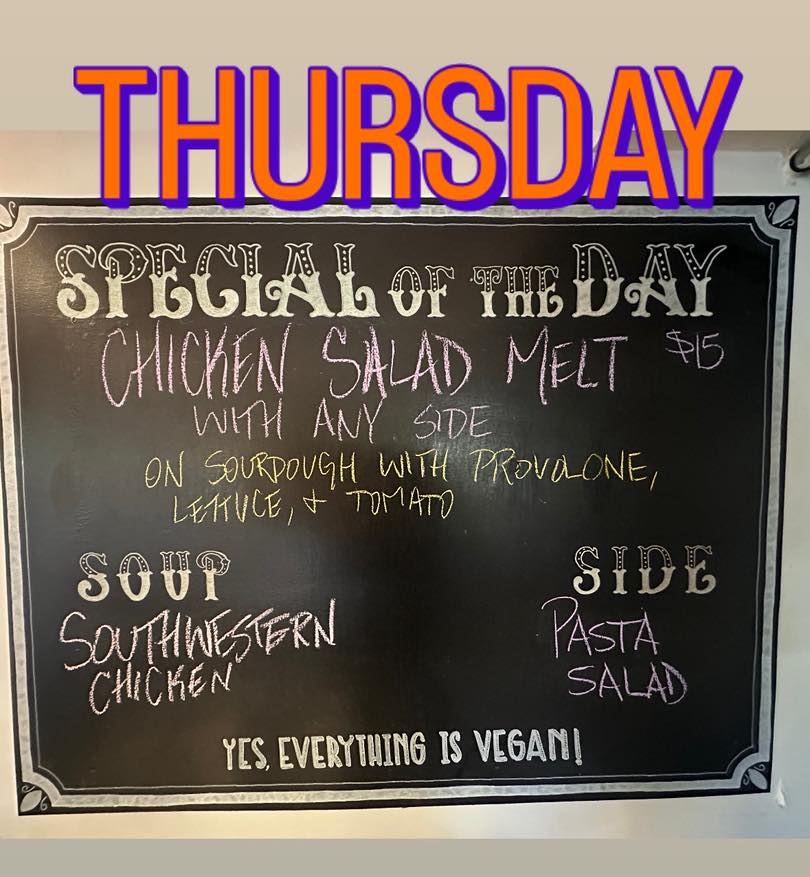 THURSDAY
SPECIAL OF THE DAY
CHICKEN SALAD MELT $15
WITH ANY SIDE
ON SOURDOUGH WITH PROVOLONE,
LETTUCE, & TOMATO
SOUP
SOUTHWESTERN
CHICKEN
SIDE
PASTA
SALAD
YES, EVERYTHING IS VEGAN!